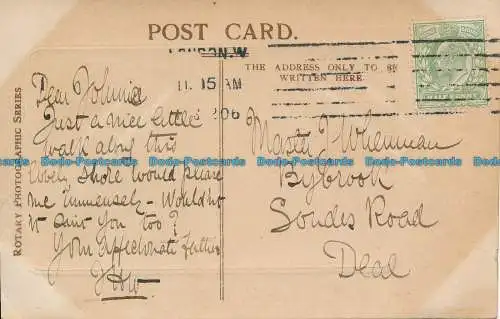 POST CARD.
LONDON.W
THE ADDRESS ONLY TO BE
WRITTEN HERE.
11.15 AM
06
ROTARY PHOTOGRAPHIC SERIES
Dear Johnnie
Just a nice little
walk along this
lovely shore would please
me immensely - Wouldn't
it suit you too?
Your affectionate father
JHW
Master J Whenman
Bybrook
Sondes Road
Deal
Postcards-DB.com Postcards-DB.com Postcards-DB.com Postcards-DB.com